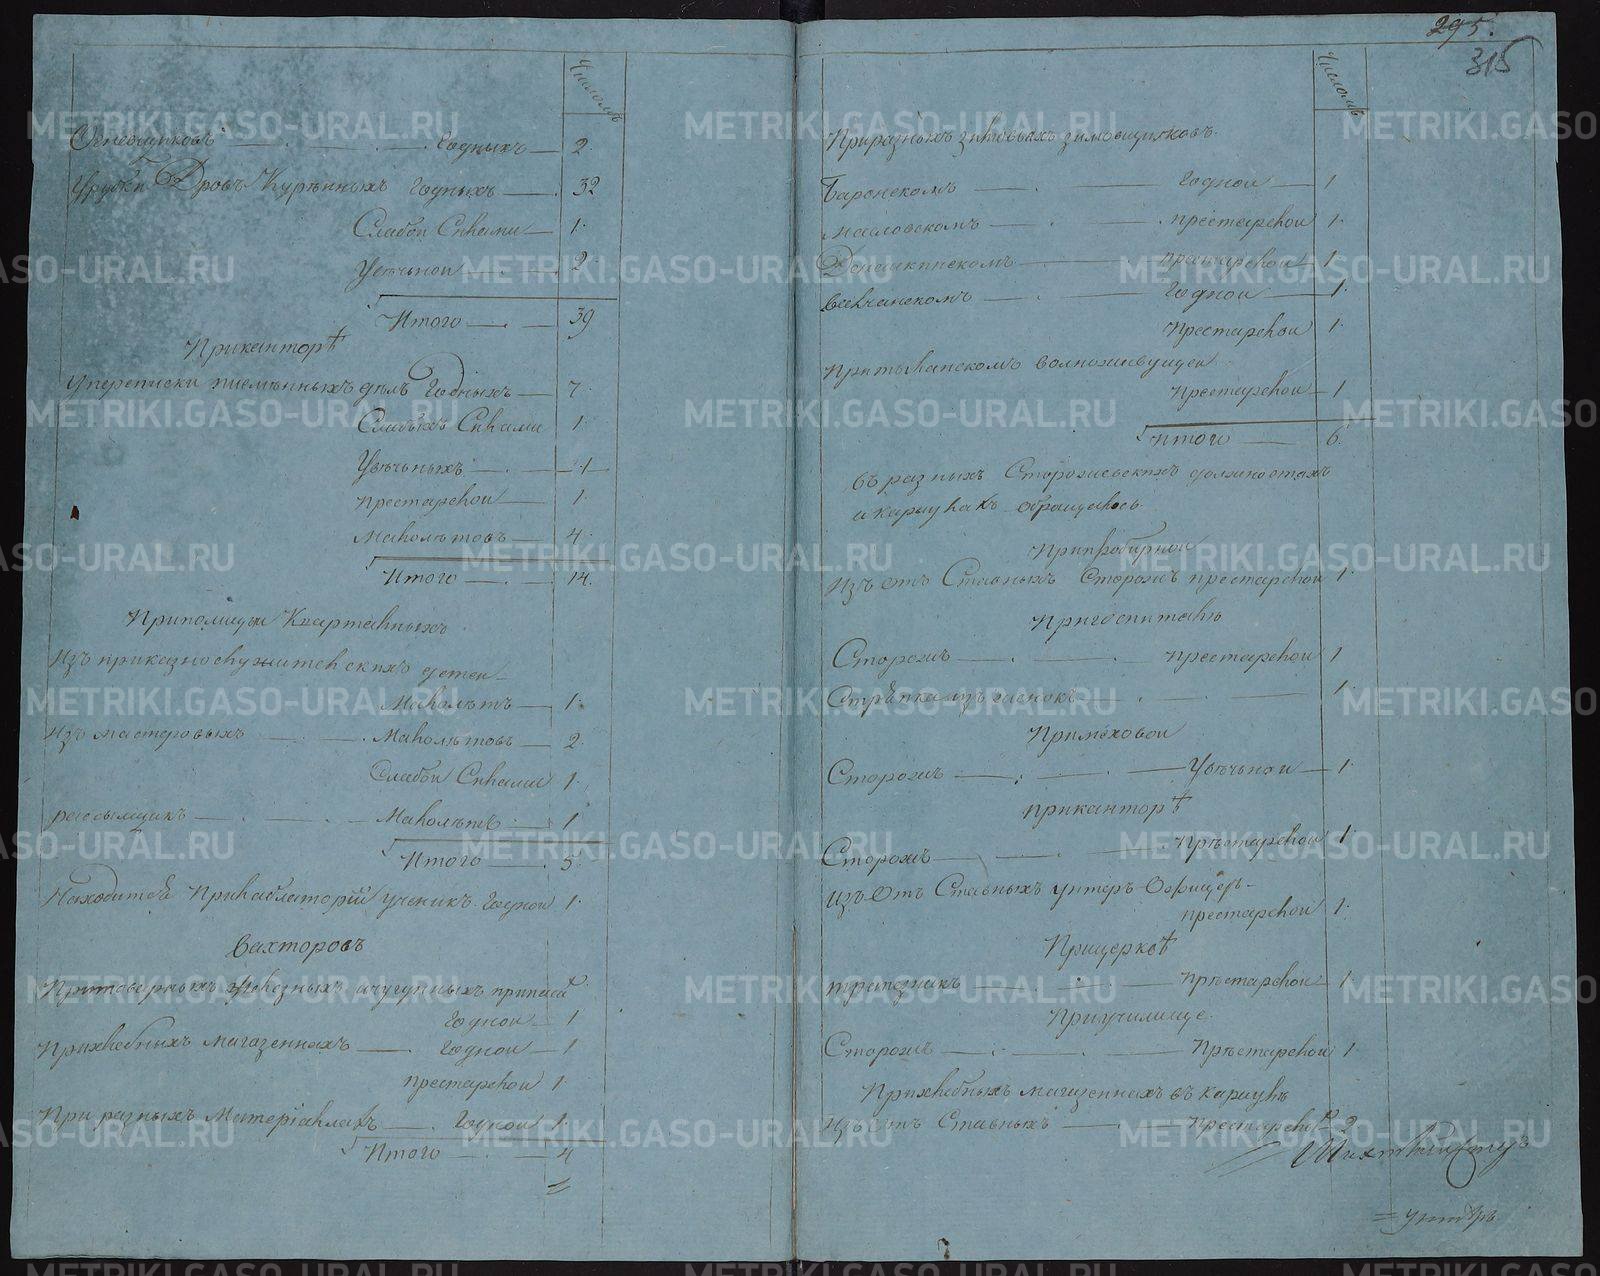 Числомъ
Огневщиковъ годныхъ 2
У рубки Дровъ Куренныхъ годныхъ 32
Слабой Силами 1
Увечной 2
Итого 39
При канторѣ
У переписки писменныхъ делъ годныхъ 7
Слабыхъ Силами 1
Увечныхъ 1
престарелой 1
Малолѣтовъ 4
Итого 14.
При полиции Квартальныхъ
Изъ приказнослужительскихъ детей
Малолѣтъ 1
Изъ мастеровыхъ Малолѣтовъ 2
Слабой Силами 1
разсыльщикъ Малолѣтъ 1
Итого 5
Находится При лаблаторіи ученикъ годной 1
Вахторовъ
При товарныхъ железныхъ и чугунныхъ
годной 1
При хлебныхъ магазейнахъ годной 1
престарелой 1
При разныхъ Матеріалахъ годной 1
Итого 4
295.
315
Числомъ
При разныхъ зимовьяхъ зимовщиковъ
годной 1
Масловскомъ престарелой 1
престарелой 1
годной 1
Престарелой 1
Престарелой 1
Итого 6
въ разныхъ Сторожевскихъ должностяхъ
и караулахъ обращалось
При пробирной
Изъ От Ставныхъ Сторожъ престарелой 1
При госпиталѣ
Сторожъ престарелой 1
1
При меховой
Сторожъ Увечной 1
при канторѣ
Сторожъ Престарелой 1
Изъ От Ставныхъ унтеръ Офицеръ
престарелой 1
При церквѣ
трапезникъ Престарелой 1
При училище
Сторожъ Престарелой 1
При хлебныхъ магазейнахъ въ карауле
Изъ От Ставныхъ Престарелой 2
METRIKI.GASO-URAL.RU